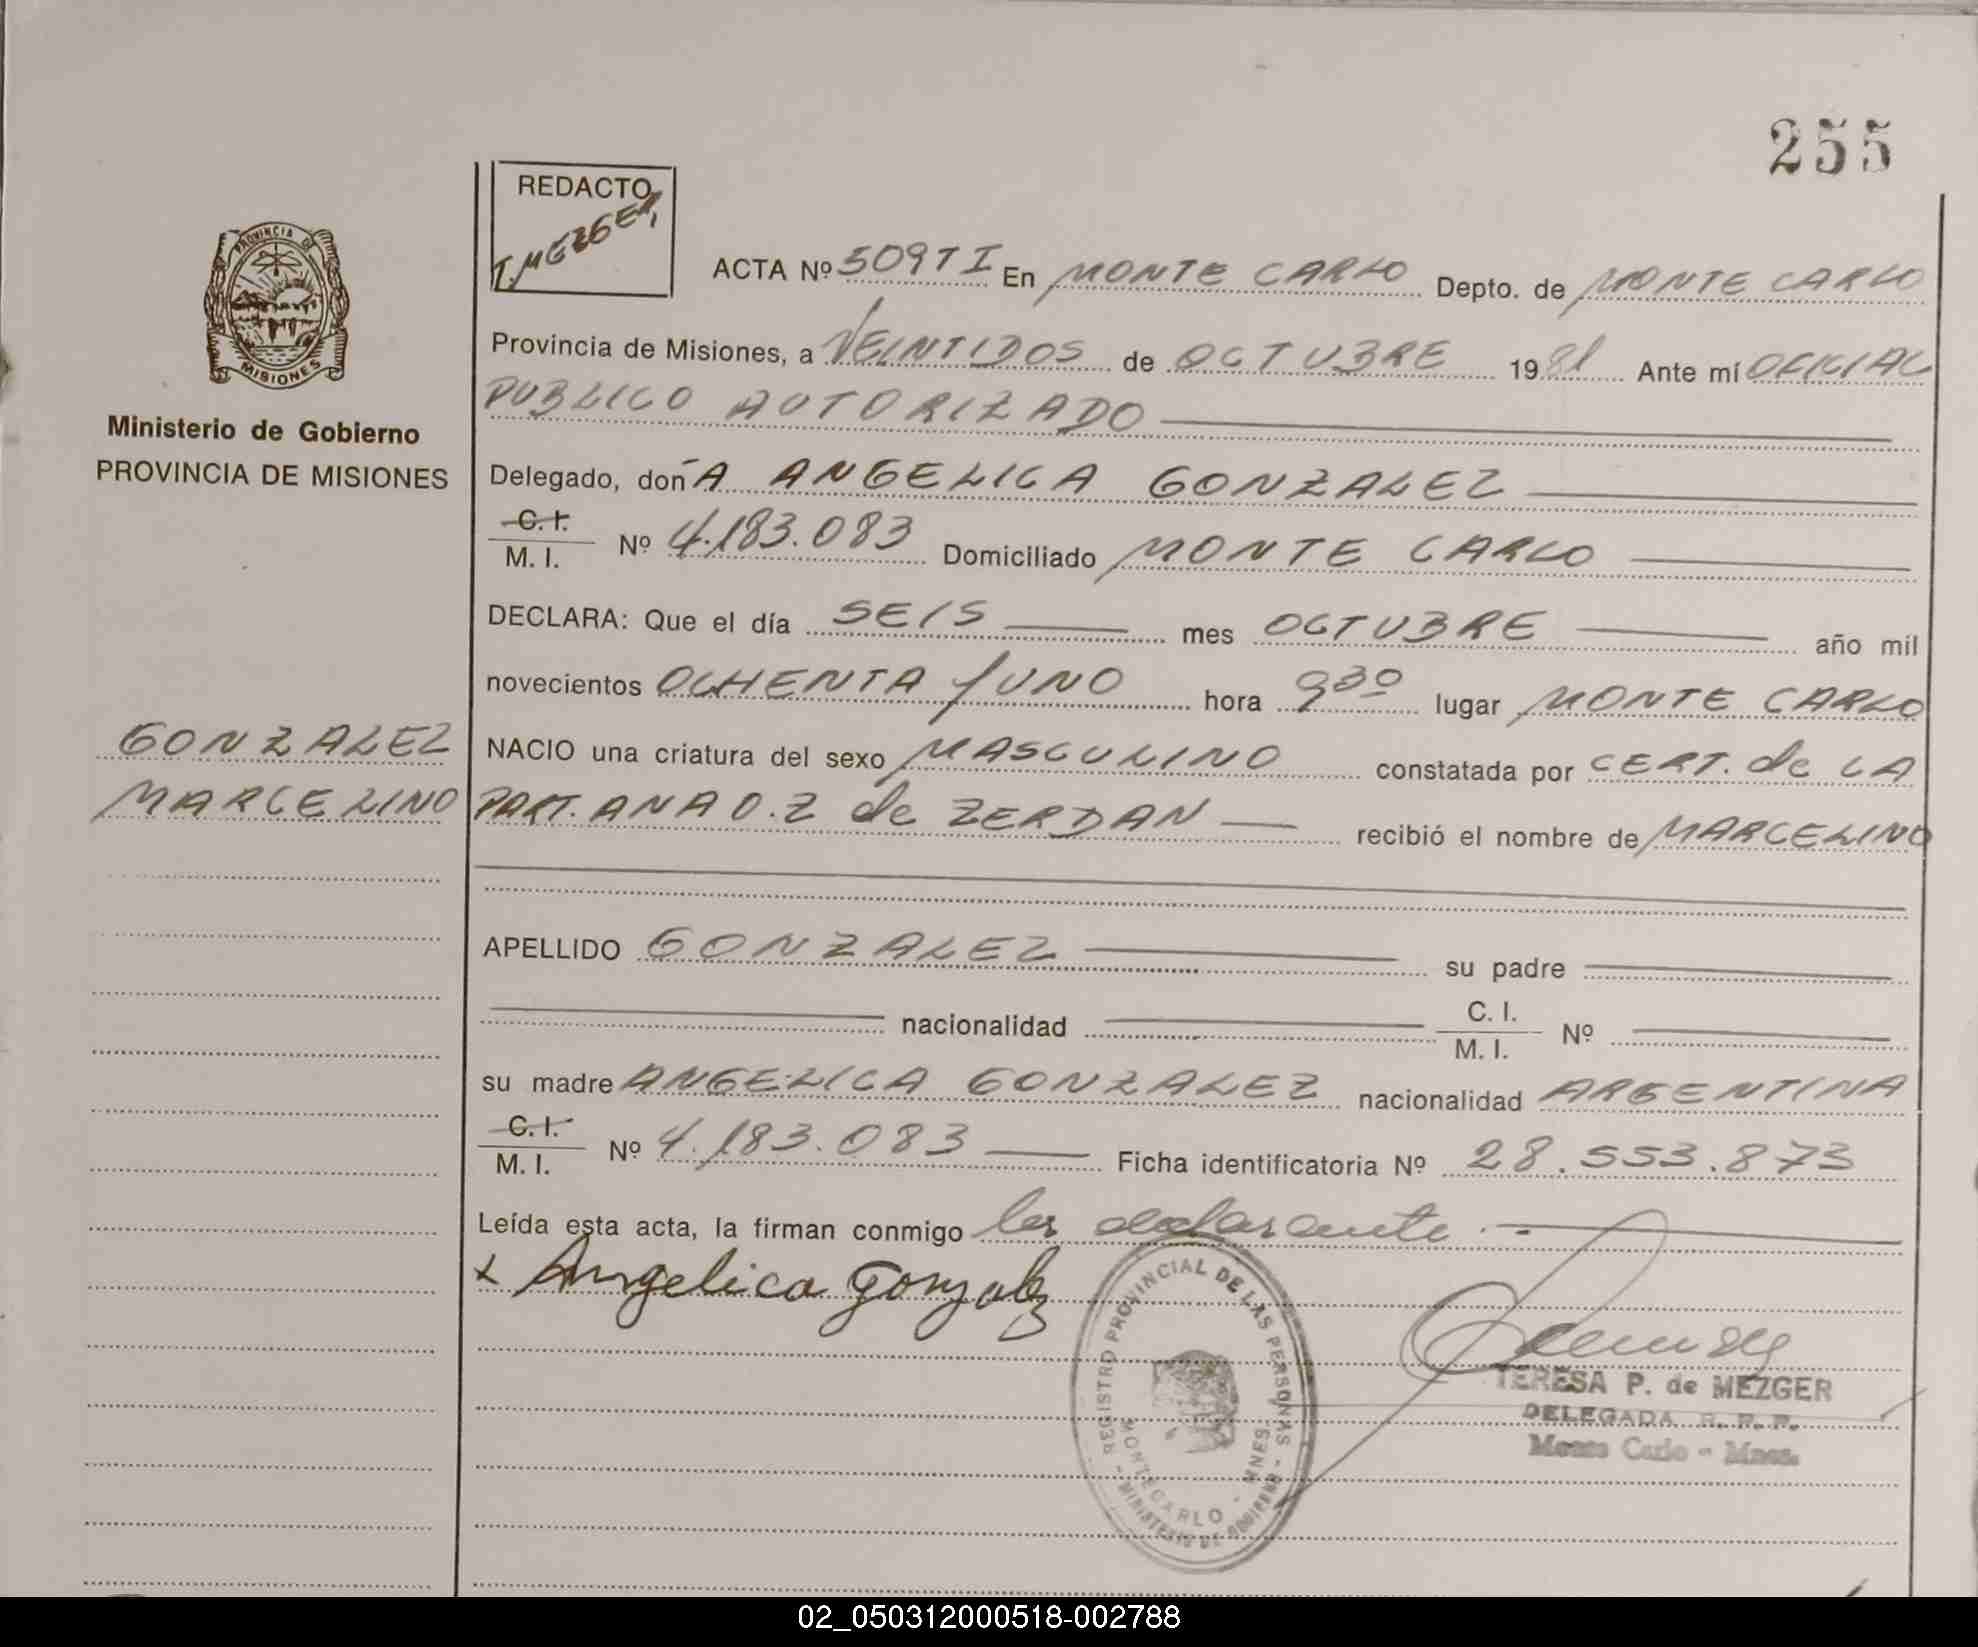 255
REDACTO
T. MEZGER
PROVINCIA DE
MISIONES
Ministerio de Gobierno
PROVINCIA DE MISIONES
ACTA Nº 509 T I En MONTE CARLO Depto. de MONTE CARLO
Provincia de Misiones, a VEINTIDOS de OCTUBRE 1981 Ante mí OFICIAL
PUBLICO AUTORIZADO
Delegado, doñA ANGELICA GONZALEZ
C. I.
M. I. Nº 4.183.083 Domiciliado MONTE CARLO
DECLARA: Que el día SEIS mes OCTUBRE año mil
novecientos OCHENTA Y UNO hora 9 30 lugar MONTE CARLO
NACIO una criatura del sexo MASCULINO constatada por CERT. de LA
PART. ANA O. Z de ZERDAN recibió el nombre de MARCELINO
GONZALEZ
MARCELINO
APELLIDO GONZALEZ su padre
nacionalidad C. I.
M. I. Nº
su madre ANGELICA GONZALEZ nacionalidad ARGENTINA
C. I.
M. I. Nº 4.183.083 Ficha identificatoria Nº 28.553.873
Leída esta acta, la firman conmigo la declarante.-
x Angelica Gonzalez
REGISTRO PROVINCIAL DE LAS PERSONAS - MINISTERIO DE GOBIERNO
MONTECARLO - MNES.
TERESA P. de MEZGER
DELEGADA R. P. P.
Monte Carlo - Mnes.
02_050312000518-002788